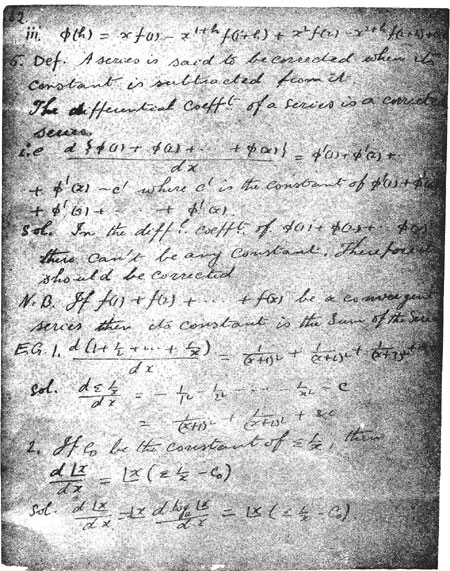 62
iii. φ(h) = x f(1) − x^{1+h} f(1+h) + x² f(2) − x^{2+h} f(2+h) + &c
5. Def. A series is said to be corrected when its
constant is subtracted from it.
The differential coefft. of a series is a corrected
series.
i.e. d{φ(1) + φ(2) + ⋯ + φ(x)}/dx = φ'(1) + φ'(2) + ⋯
+ φ'(x) − c' where c' is the constant of φ'(1) + φ'(2)
+ φ'(3) + ⋯ + φ'(x).
Sol. In the difft. coefft. of φ(1) + φ(2) + ⋯ φ(x)
there can't be any constant. Therefore it
should be corrected
N.B. If f(1) + f(2) + ⋯ + f(x) be a convergent
series then its constant is the sum of the series
E.G. 1. d(1 + ½ + ⋯ + 1/x)/dx = 1/(x+1)² + 1/(x+2)² + 1/(x+3)² + &c
Sol. dΣ1/x / dx = − 1/1² − 1/2² − ⋯ − 1/x² − c
= 1/(x+1)² + 1/(x+2)² + &c
2. If C₀ be the constant of Σ 1/x, then
d|x/dx = |x (Σ 1/x − C₀)
Sol. d|x/dx = |x d logₑ|x/dx = |x (Σ 1/x − C₀)